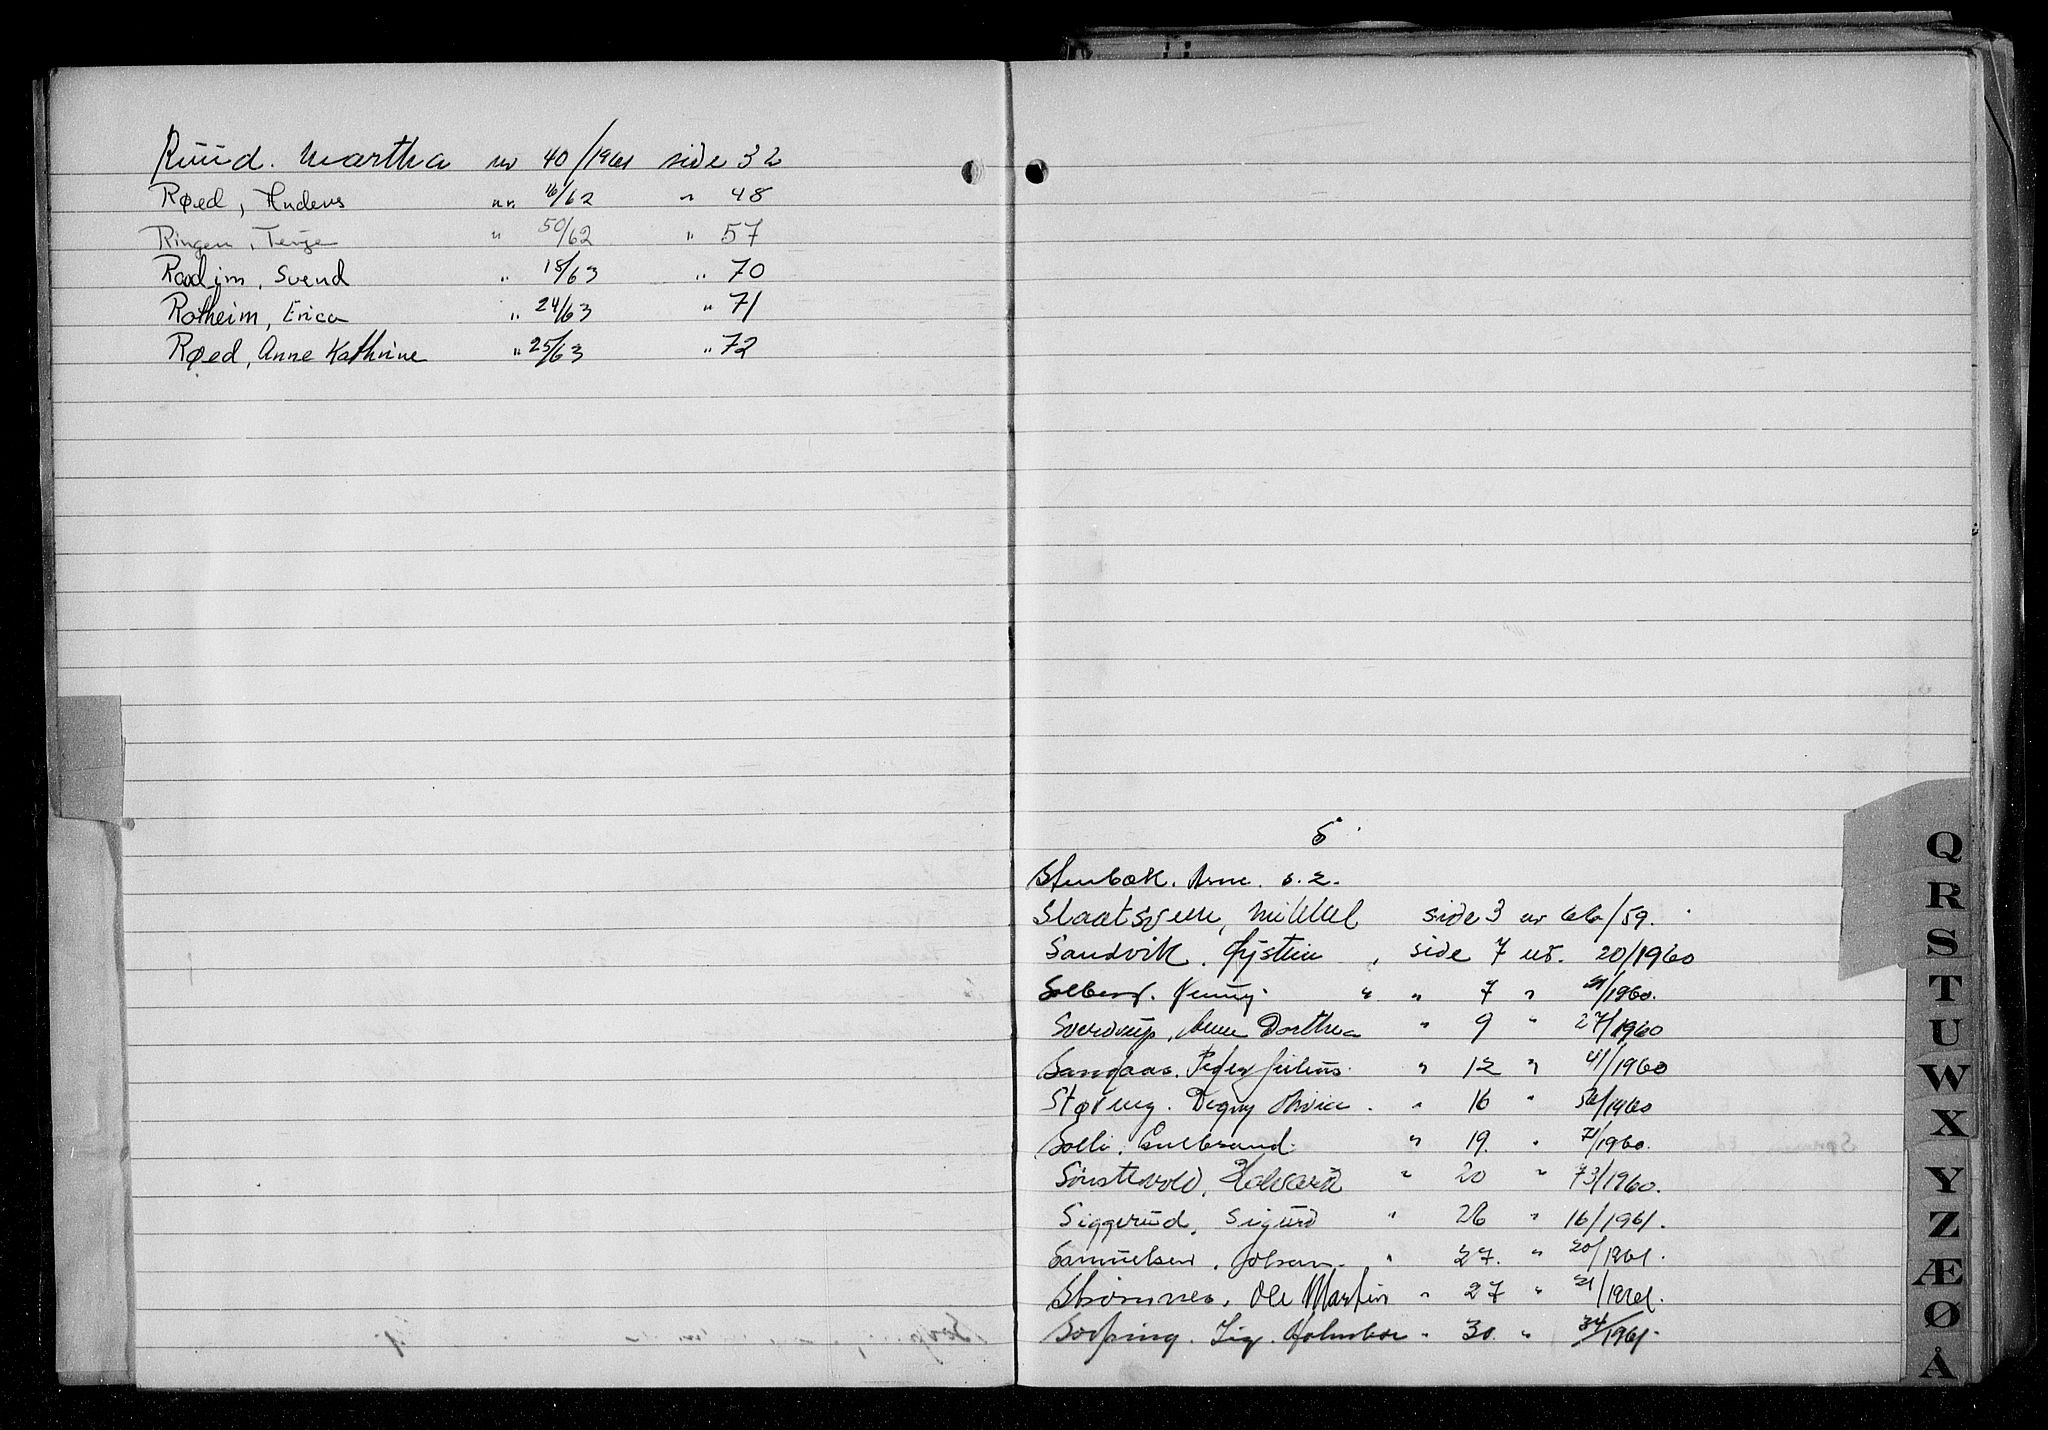 Ruud. Martha nr 40/1961 side 32
Røed, Anders nr. 16/62 " 48
Ringen, Terje " 50/62 " 57
Raadim, Svend " 18/63 " 70
Rotheim, Erica " 24/63 " 71
Røed, Anne Kathrine " 25/63 " 72
S.
Stenbæk. Arne. s. 2.
Mikkel side 3 nr 66/59.
Sandvik. Øystein, side 7 nr. 20/1960
Solberg. Jenny. " " 7 " 21/1960.
Sverdrup, Anne Dorthea " 9 " 27/1960
Peder Julius. " 12 " 41/1960
Støreng. Dagny " 16 " 56/1960
Solli. Gulbrand. " 19. " 71/1960.
Sønstevold, Halvard " 20 " 73/1960.
Siggerud, Sigurd " 26 " 16/1961.
Samuelsen, Johan. " 27. " 20/1961.
Strømnes, Ole Martin " 27 " 21/1961.
Sig. " 30 " 34/1961.
Q
R
S
T
U
W
X
Y
Z
Æ
Ø
Å